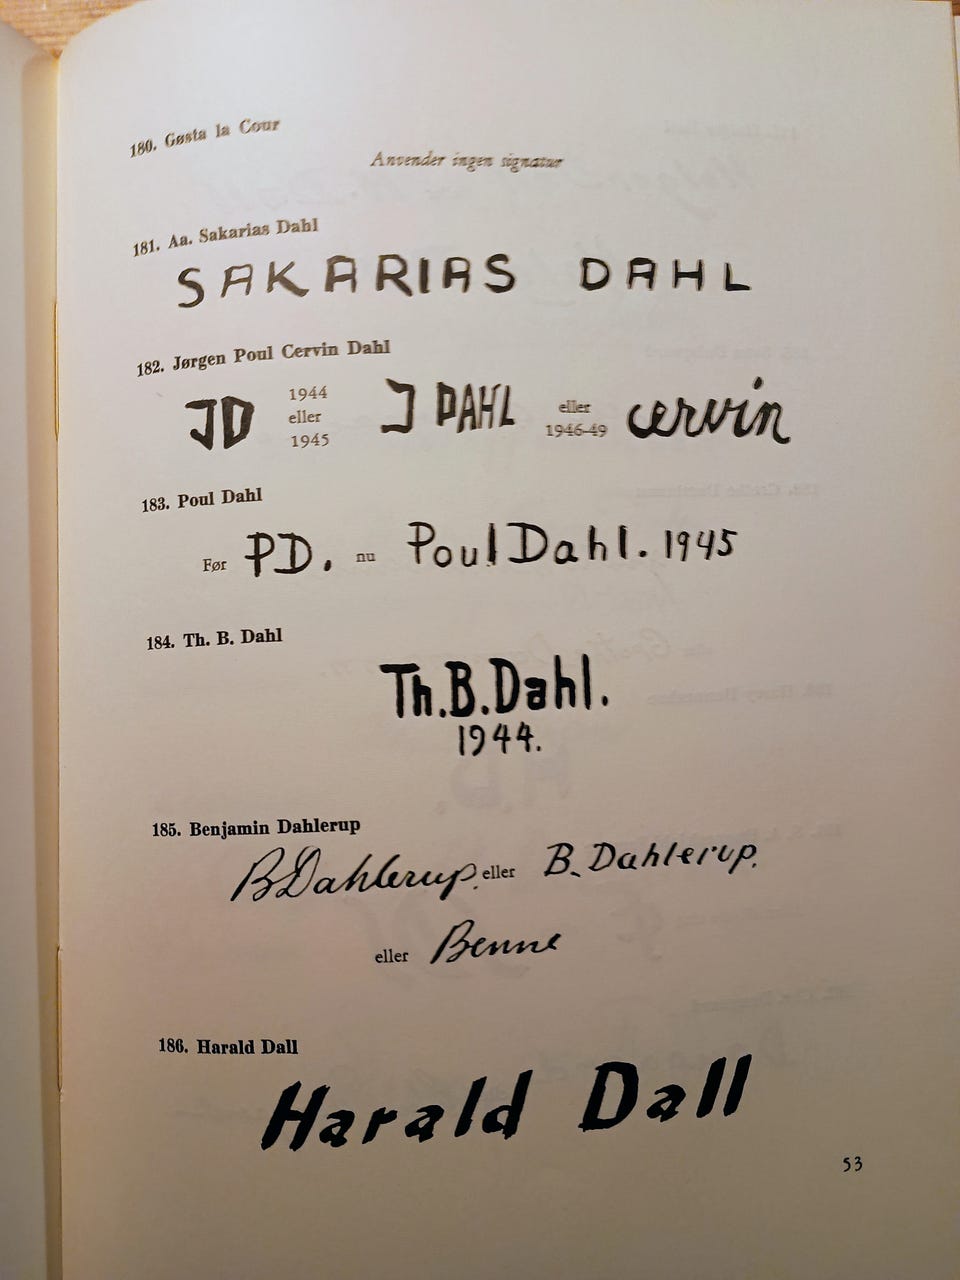 180. Gøsta la Cour
Anvender ingen signatur
181. Aa. Sakarias Dahl
SAKARIAS DAHL
182. Jørgen Poul Cervin Dahl
JD 1944 eller 1945 J DAHL eller 1946-49 cervin
183. Poul Dahl
Før PD. nu Poul Dahl. 1945
184. Th. B. Dahl
Th.B.Dahl.
1944.
185. Benjamin Dahlerup
BDahlerup. eller B. Dahlerup.
eller Benne
186. Harald Dall
Harald Dall
53